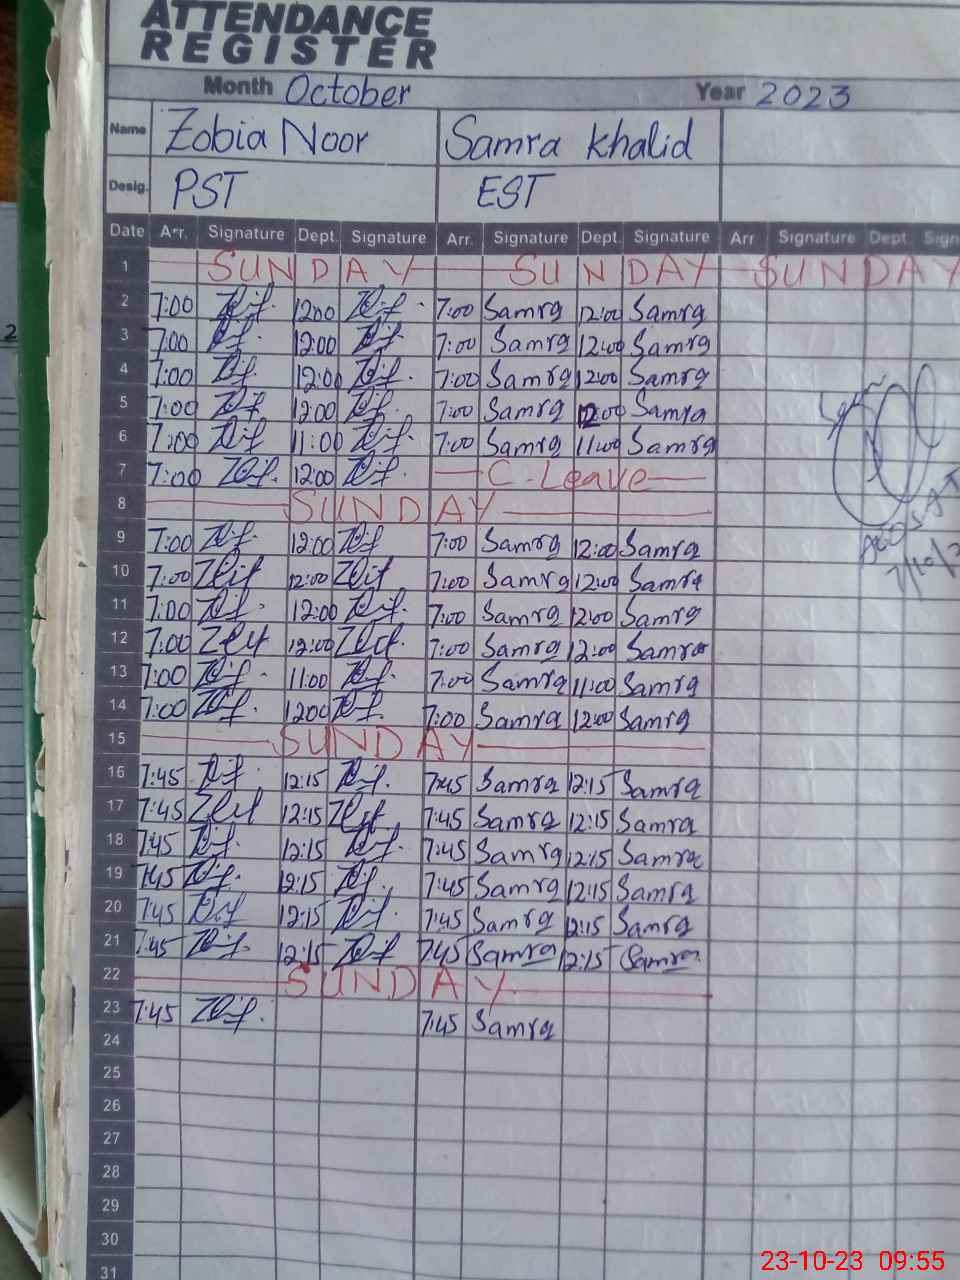 ATTENDANCE
REGISTER
Month October Year 2023
Name Zobia Noor Samra Khalid
Desig. PST EST
Date Arr. Signature Dept. Signature Arr. Signature Dept. Signature Arr Signature Dept Sign
1 SUNDAY SUNDAY SUNDAY
2 7:00 1200 7:00 Samra 12:00 Samra
3 7:00 12:00 7:00 Samra 12:00 Samra
4 7:00 12:00 7:00 Samra 12:00 Samra
5 7:00 12:00 7:00 Samra 12:00 Samra
6 7:00 11:00 7:00 Samra 11:00 Samra
7 7:00 12:00 C.Leave
8 SUNDAY
9 7:00 12:00 7:00 Samra 12:00 Samra
10 7:00 12:00 7:00 Samra 12:00 Samra
11 7:00 12:00 7:00 Samra 12:00 Samra
12 7:00 12:00 7:00 Samra 12:00 Samra
13 7:00 11:00 7:00 Samra 11:00 Samra
14 7:00 1200 7:00 Samra 12:00 Samra
15 SUNDAY
16 7:45 12:15 7:45 Samra 12:15 Samra
17 7:45 12:15 7:45 Samra 12:15 Samra
18 7:45 12:15 7:45 Samra 12:15 Samra
19 7:45 12:15 7:45 Samra 12:15 Samra
20 7:45 12:15 7:45 Samra 12:15 Samra
21 7:45 12:15 7:45 Samra 12:15 Samra
22 SUNDAY
23 7:45 7:45 Samra
24
25
26
27
28
29
30
31
23-10-23 09:55